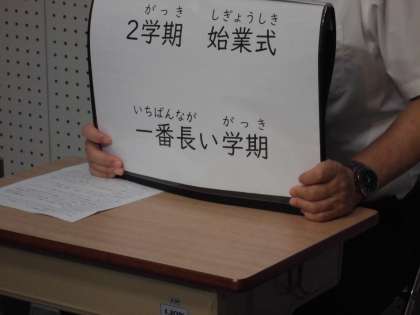 がっき しぎょうしき
2学期 始業式
いちばんなが がっき
一番長い学期